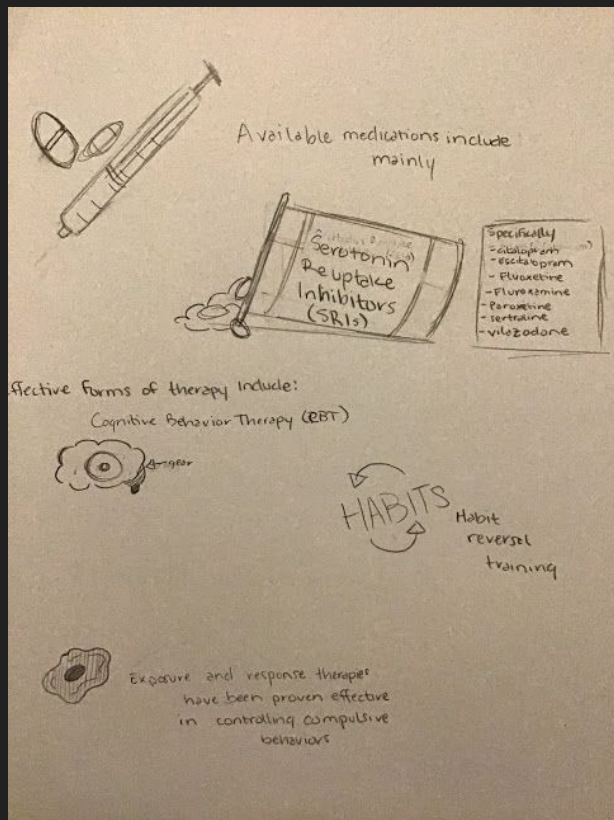 Available medications include
mainly
Serotonin
Reuptake
Inhibitors
(SRIs)
Specifically
-citalopram
-Escitalopram
-Fluoxetine
-Fluvoxamine
-Paroxetine
-sertraline
-vilazodone
ffective forms of therapy Include:
Cognitive Behavior Therapy (CBT)
gear
HABITS
Habit
reversal
training
Exposure and response therapies
have been proven effective
in controlling compulsive
behaviors